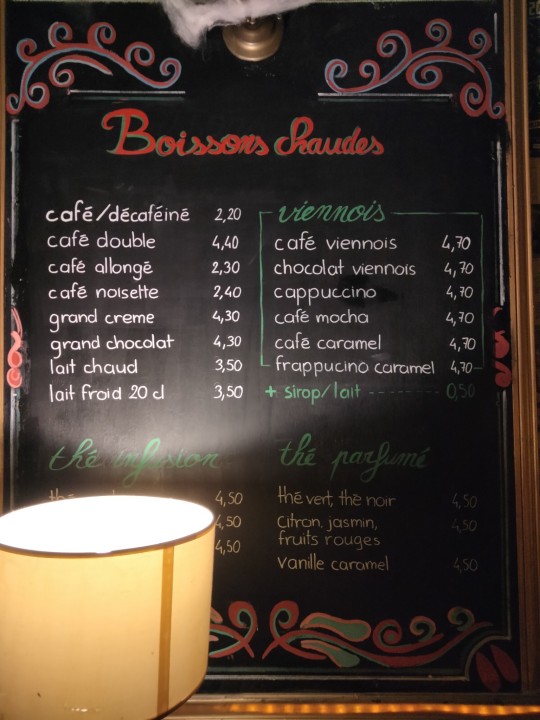 Boissons chaudes
café/décaféiné 2,20
café double 4,40
café allongé 2,30
café noisette 2,40
grand creme 4,30
grand chocolat 4,30
lait chaud 3,50
lait froid 20 cl 3,50
viennois
café viennois 4,70
chocolat viennois 4,70
cappuccino 4,70
café mocha 4,70
café caramel 4,70
frappucino caramel 4,70
+ sirop/lait 0,50
thé infusion
4,50
4,50
4,50
thé parfumé
thé vert, thé noir 4,50
citron, jasmin, 4,50
fruits rouges
vanille caramel 4,50